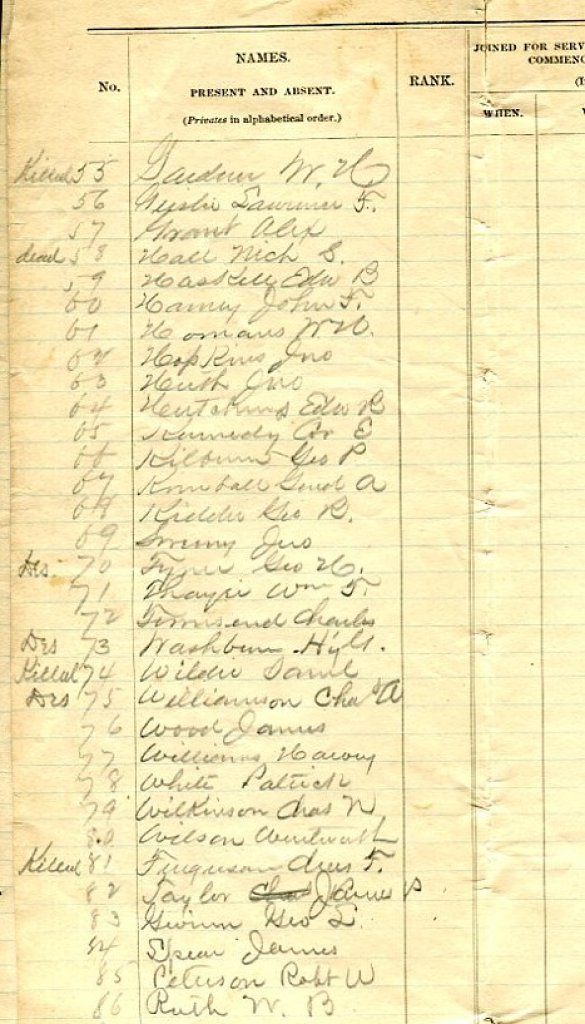 No.
NAMES.
PRESENT AND ABSENT.
(Privates in alphabetical order.)
RANK.
JOINED FOR SERV
COMMENC
(I
WHEN.
W
Killed 55 Gardner W. H
56 Lawrence F.
57 Grant Alex
dead 58 Hall Nich S.
59 Haskell Edw B
60 Harney John F.
61 Homans W H.
62 Hopkins Jno
63 Huth Jno
64 Hutchins Edw B
65 Kennedy E
66 Kilburn Geo P
67 Kimball A
68 Kidder Geo B.
69 Jno
Des. 70 Geo H.
71 Thayer Wm F.
72 Townsend Charles
Des 73 Washburn
Killed 74 Wilder Saml
Des 75 Williamson Chas A
76 Wood James
77 Williams Harvey
78 White Patrick
79 Wilkinson Chas N
80 Wilson Wentworth
Killed 81 Ferguson F.
82 Taylor James P
83 Geo L
84 Spear James
85 Peterson Robt W
86 Ruth W. B